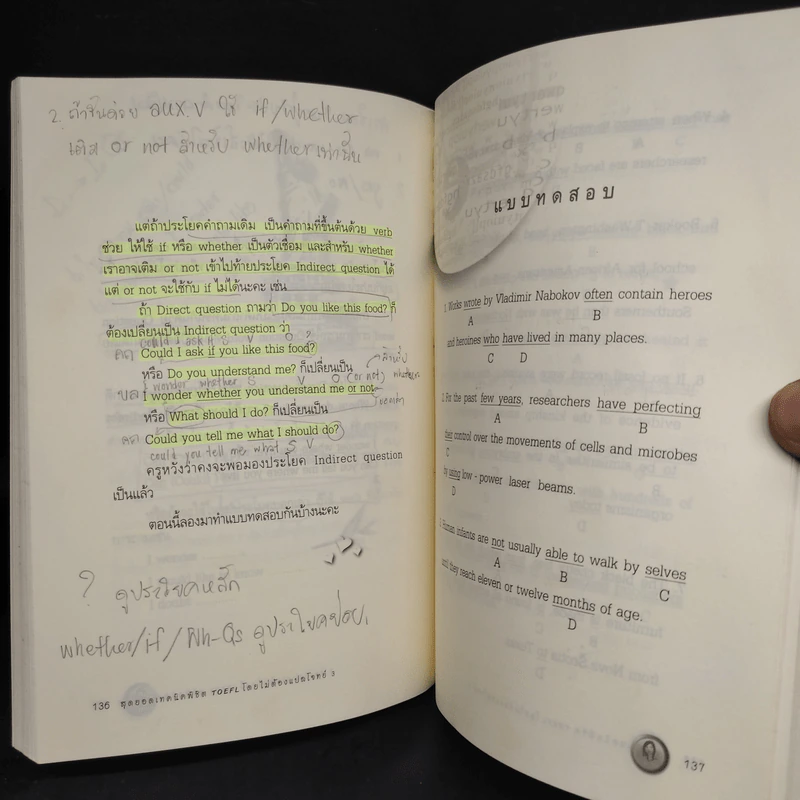 2. ถ้าขึ้นด้วย aux.V ใช้ if/whether
เติม or not สำหรับ whether เท่านั้น
แต่ถ้าประโยคคำถามเดิม เป็นคำถามที่ขึ้นต้นด้วย verb
ช่วย ให้ใช้ if หรือ whether เป็นตัวเชื่อม และสำหรับ whether
เราอาจเติม or not เข้าไปท้ายประโยค Indirect question ได้
แต่ or not จะใช้กับ if ไม่ได้นะคะ เช่น
ถ้า Direct question ถามว่า Do you like this food? ก็
ต้องเปลี่ยนเป็น Indirect question ว่า
could I ask if S V O ?
Could I ask if you like this food?
หรือ Do you understand me? ก็เปลี่ยนเป็น
สำหรับ
I wonder whether S V O (or not) whether
I wonder whether you understand me or not
หรือ What should I do? ก็เปลี่ยนเป็น
Could you tell me what I should do?
could you tell me what S V
ครูหวังว่าคงจะพอมองประโยค Indirect question
เป็นแล้ว
ตอนนี้ลองมาทำแบบทดสอบกันบ้างนะคะ
? ดูประโยคหลัก
whether/if/Wh-Qs ดูประโยคย่อย
136 สุดยอดเทคนิคพิชิต TOEFL โดยไม่ต้องแปลโจทย์ 3
แบบทดสอบ
1. Works wrote by Vladimir Nabokov often contain heroes
A B
and heroines who have lived in many places.
C D
2. For the past few years, researchers have perfecting
A B
their control over the movements of cells and microbes
C
by using low - power laser beams.
D
3. Human infants are not usually able to walk by selves
A B C
until they reach eleven or twelve months of age.
D
137